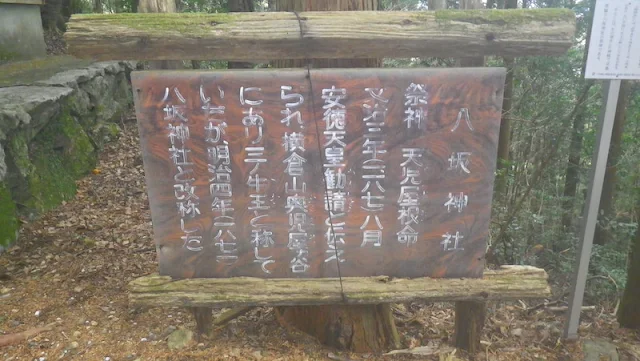 八坂神社
祭神 天児屋根命
文治三年一一八七八月
安徳天皇勧請と伝え
られ横倉山奥児屋谷
にあり三ノ牛王と称して
いたが、明治四年一八七一
八坂神社と改称した